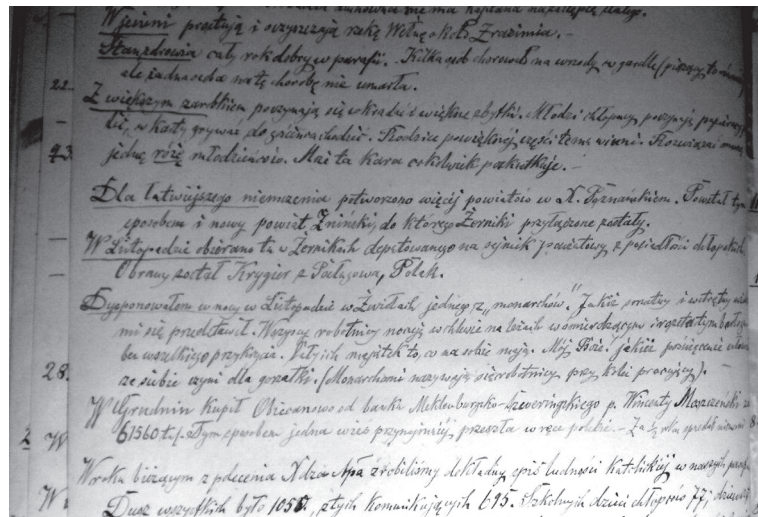 nie ma kapłana
W jesieni prostują i oczyszczają rzekę Wełnę około Zrazimia. —
Stan zdrowia cały rok dobry w parafii. Kilka osób chorowało na wrzody w gardle (piszący to również)
22. ale żadna osoba na tę chorobę nie umarła.
Z większym zarobkiem poczynają się wkradać i większe zbytki. Młodzi chłopcy poczynają papierosy
w karty grywać, do gościńca chodzić. Rodzice po większej części temu winni. Rozwiązać
43. jednę różę młodzieńców. Mai ta kara cokolwiek poskutkuje. —
Dla łatwiejszego niemczenia potworzono więcej powiatów w X. Poznańskiem. Powstał tym
sposobem i nowy powiat Żniński, do którego Żerniki przyłączone zostały.
W Listopadzie obierano tu w Żernikach deputowanego na sejmik powiatowy z posiedłości chłopskich.
Obrany został Krygier z Polak.
Dysponowałem w nocy w Listopadzie w jednego z „monarchów". Jakiż smutny i wstrętny
mi się przedstawił. Wszyscy robotnicy nocują w chlewie na leżach w śmierdzącym
bez wszelkiego przykrycia. Całych majątek to, co na sobie mają. Mój Boże! jakież poświęcenie
28. ze siebie czyni dla gorzałki. (Monarchami nazywają się robotnicy przy kolei pracujący). —
W Grudniu kupił Obiecanowo od banku Meklenbursko-Szweryńskiego p. Wincenty Moszczeński za
61560 tal. Tym sposobem jedna wieś przynajmniej przeszła w ręce polskie. —
2 W
W roku bieżącym z polecenia Xdza Arpa zrobiliśmy dokładny spis ludności katolickiej w naszych
W Dusz wszystkich było 1050, z tych komunikujących 695. Szkolnych dzieci chłopców 77,